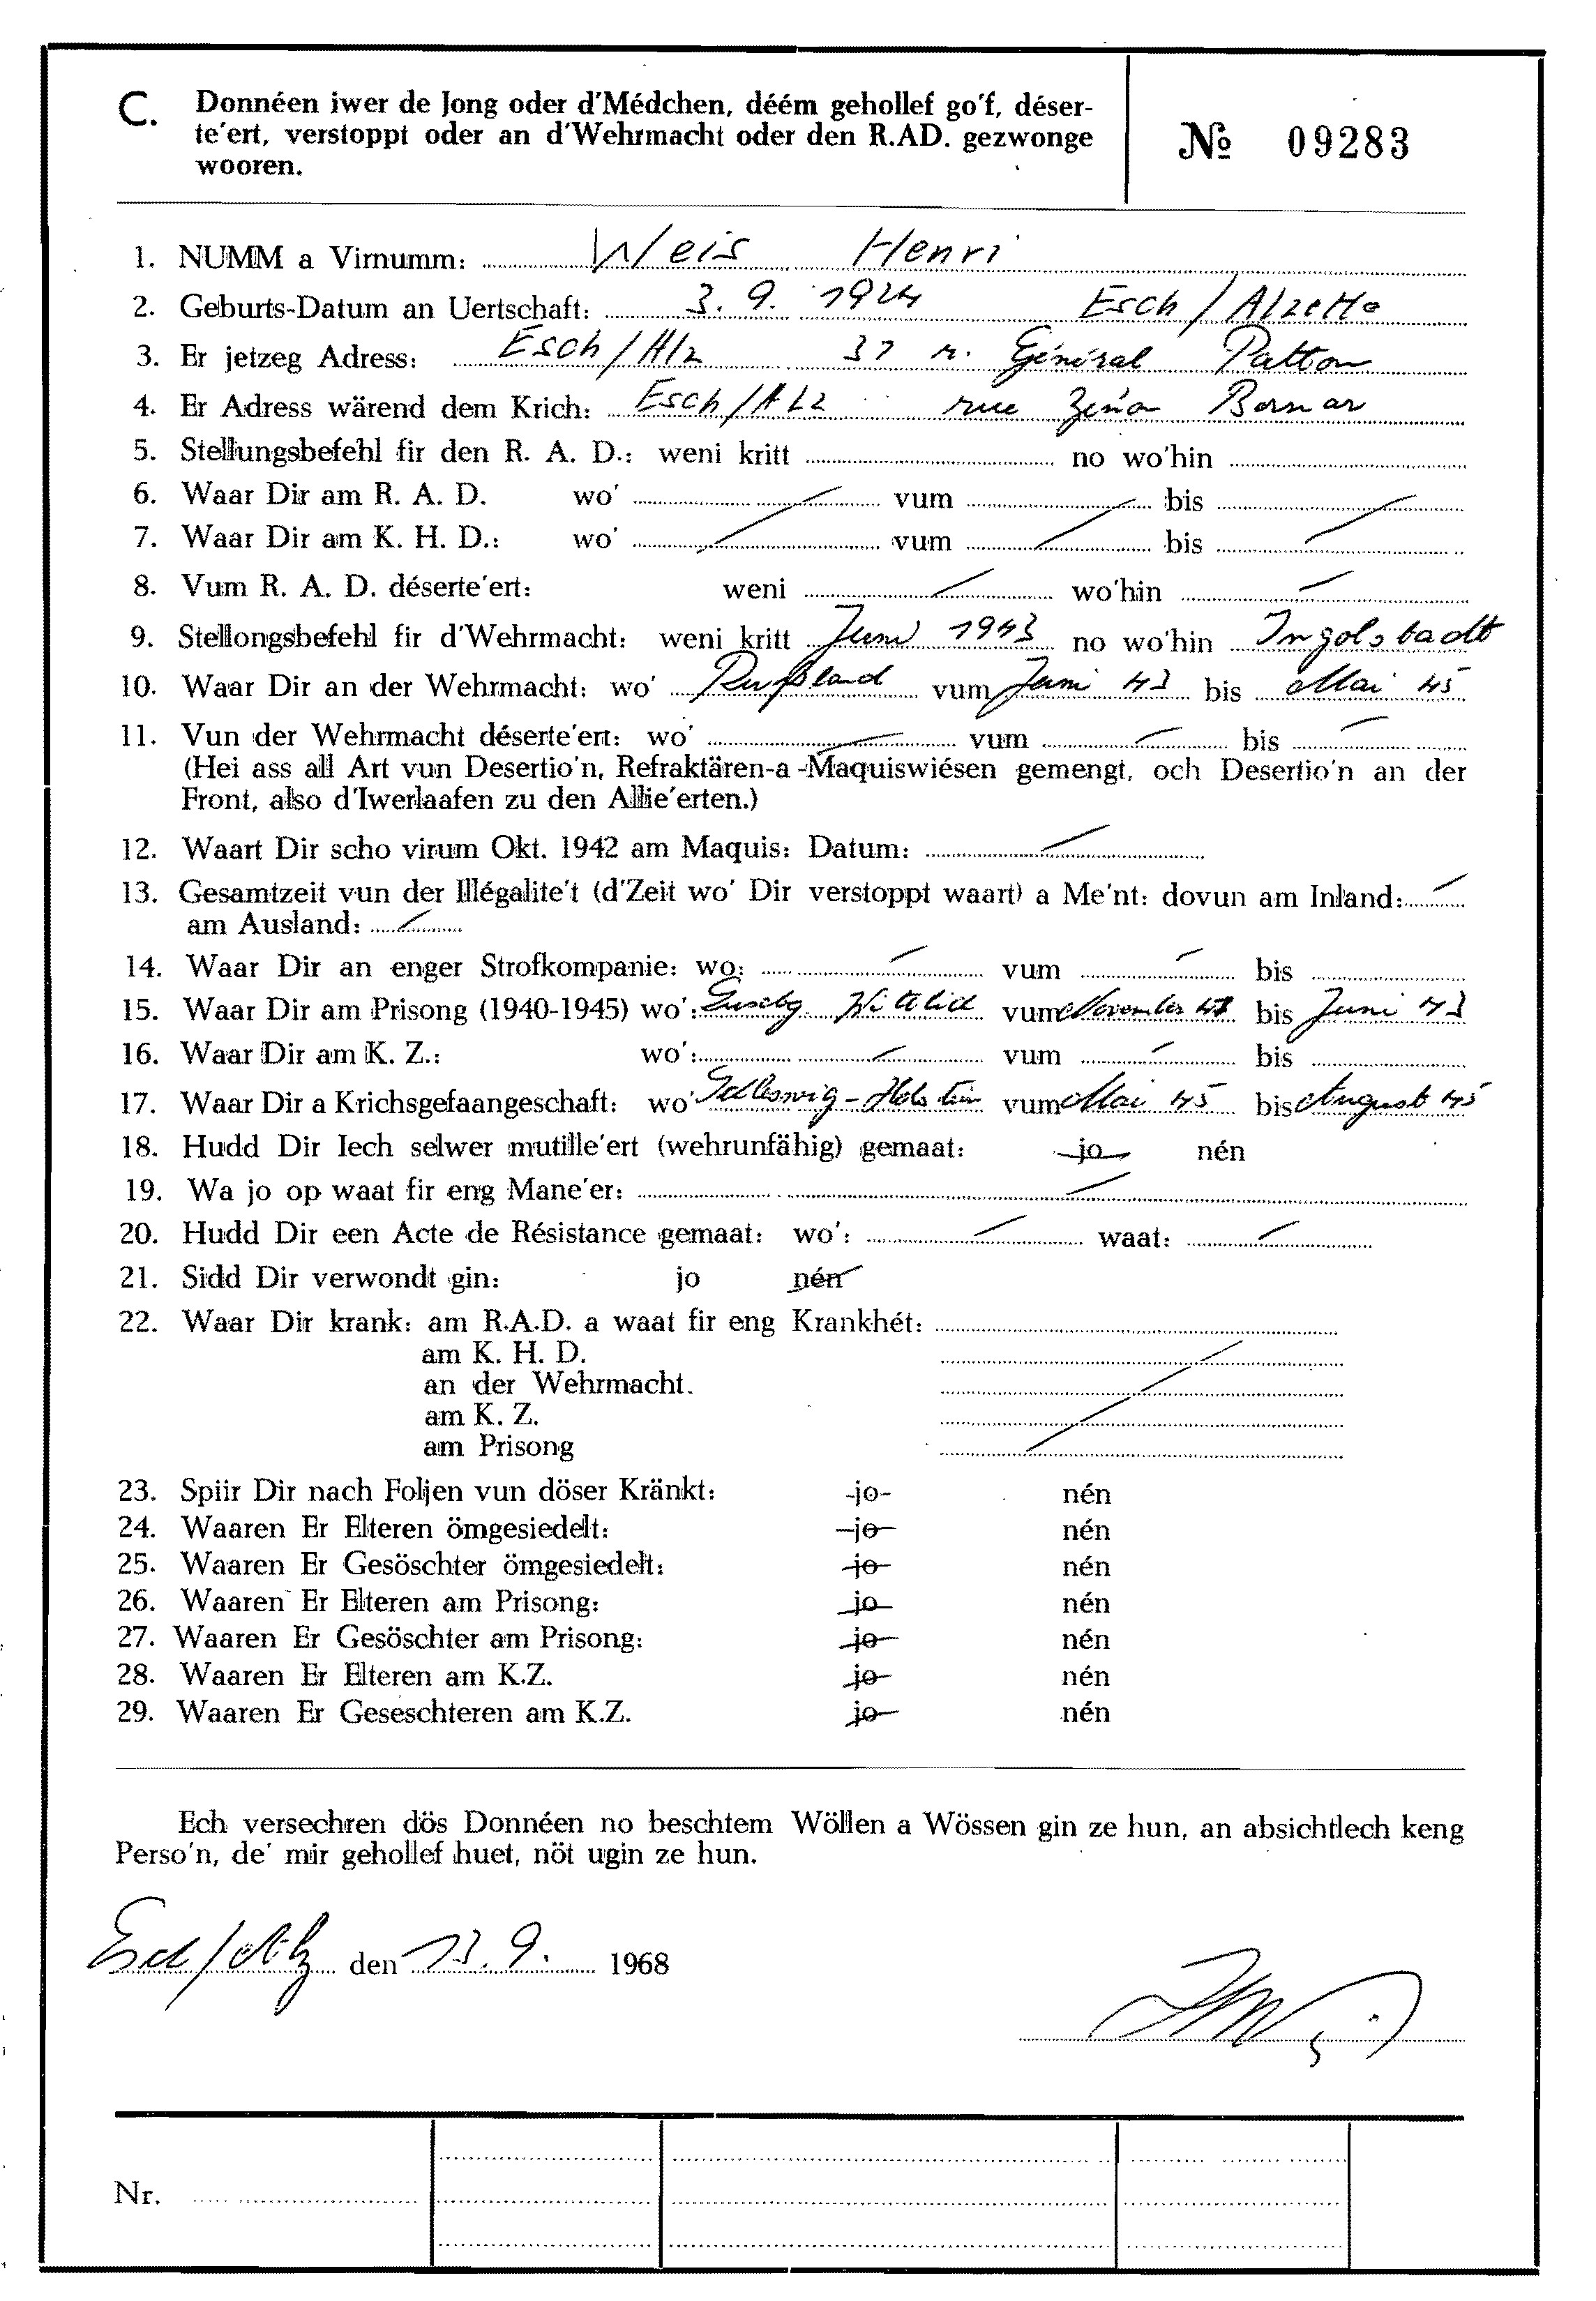 C. Donnéen iwer de Jong oder d'Médchen, déém gehollef go'f, déser-
te'ert, verstoppt oder an d'Wehrmacht oder den R.AD. gezwonge
wooren.
№ 09283
1. NUMM a Virnumm: Weis Henri
2. Geburts-Datum an Uertschaft: 3. 9. 1924 Esch/Alzette
3. Er jetzeg Adress: Esch/Alz 37 r. Général Patton
4. Er Adress wärend dem Krich: Esch/Alz rue Zénon Bernar
5. Stellungsbefehl fir den R. A. D.: weni kritt no wo'hin
6. Waar Dir am R. A. D. wo' vum bis
7. Waar Dir am K. H. D.: wo' vum bis
8. Vum R. A. D. déserte'ert: weni wo'hin
9. Stellongsbefehl fir d'Wehrmacht: weni kritt Juni 1943 no wo'hin Ingolstadt
10. Waar Dir an der Wehrmacht: wo' Rußland vum Juni 43 bis Mai 45
11. Vun der Wehrmacht déserte'ert: wo' vum bis
(Hei ass all Art vun Desertio'n, Refraktären-a-Maquiswiésen gemengt, och Desertio'n an der
Front, also d'Iwerlaafen zu den Allie'erten.)
12. Waart Dir scho virum Okt. 1942 am Maquis: Datum:
13. Gesamtzeit vun der Illégalite't (d'Zeit wo' Dir verstoppt waart) a Me'nt: dovun am Inland:
am Ausland:
14. Waar Dir an enger Strofkompanie: wo: vum bis
15. Waar Dir am Prisong (1940-1945) wo': Wittlich vum November bis Juni 43
16. Waar Dir am K. Z.: wo': vum bis
17. Waar Dir a Krichsgefaangeschaft: wo' Schleswig-Holstein vum Mai 45 bis August 45
18. Hudd Dir Iech selwer mutille'ert (wehrunfähig) gemaat: jo nén
19. Wa jo op waat fir eng Mane'er:
20. Hudd Dir een Acte de Résistance gemaat: wo': waat:
21. Sidd Dir verwondt gin: jo nén
22. Waar Dir krank: am R.A.D. a waat fir eng Krankhét:
am K. H. D.
an der Wehrmacht.
am K. Z.
am Prisong
23. Spiir Dir nach Foljen vun döser Kränkt: jo nén
24. Waaren Er Elteren ömgesiedelt: jo nén
25. Waaren Er Gesöschter ömgesiedelt: jo nén
26. Waaren Er Elteren am Prisong: jo nén
27. Waaren Er Gesöschter am Prisong: jo nén
28. Waaren Er Elteren am K.Z. jo nén
29. Waaren Er Geseschteren am K.Z. jo nén
Ech versechren dös Donnéen no beschtem Wöllen a Wössen gin ze hun, an absichtlech keng
Perso'n, de' mir gehollef huet, nöt ugin ze hun.
Esch/Alz den 13. 9. 1968
Nr.